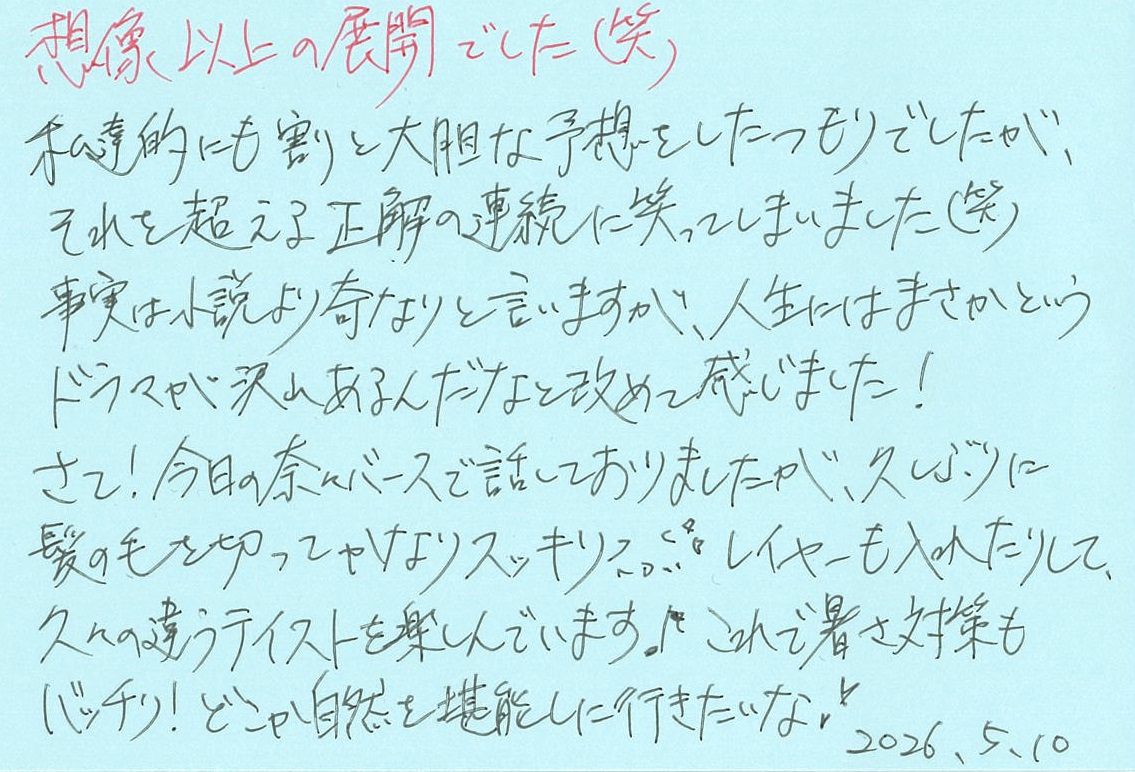 想像以上の展開でした(笑)
私達的にも割と大胆な予想をしたつもりでしたが、
それを超える正解の連続に笑ってしまいました(笑)
事実は小説より奇なりと言いますが、人生にはまさかという
ドラマが沢山あるんだなと改めて感じました!
さて!今日の奈々バースで話しておりましたが、久しぶりに
髪の毛を切ってかなりスッキリ レイヤーも入れたりして、
久々の違うテイストを楽しんでいます♪これで暑さ対策も
バッチリ!どこか自然を堪能しに行きたいな♪
2026.5.10